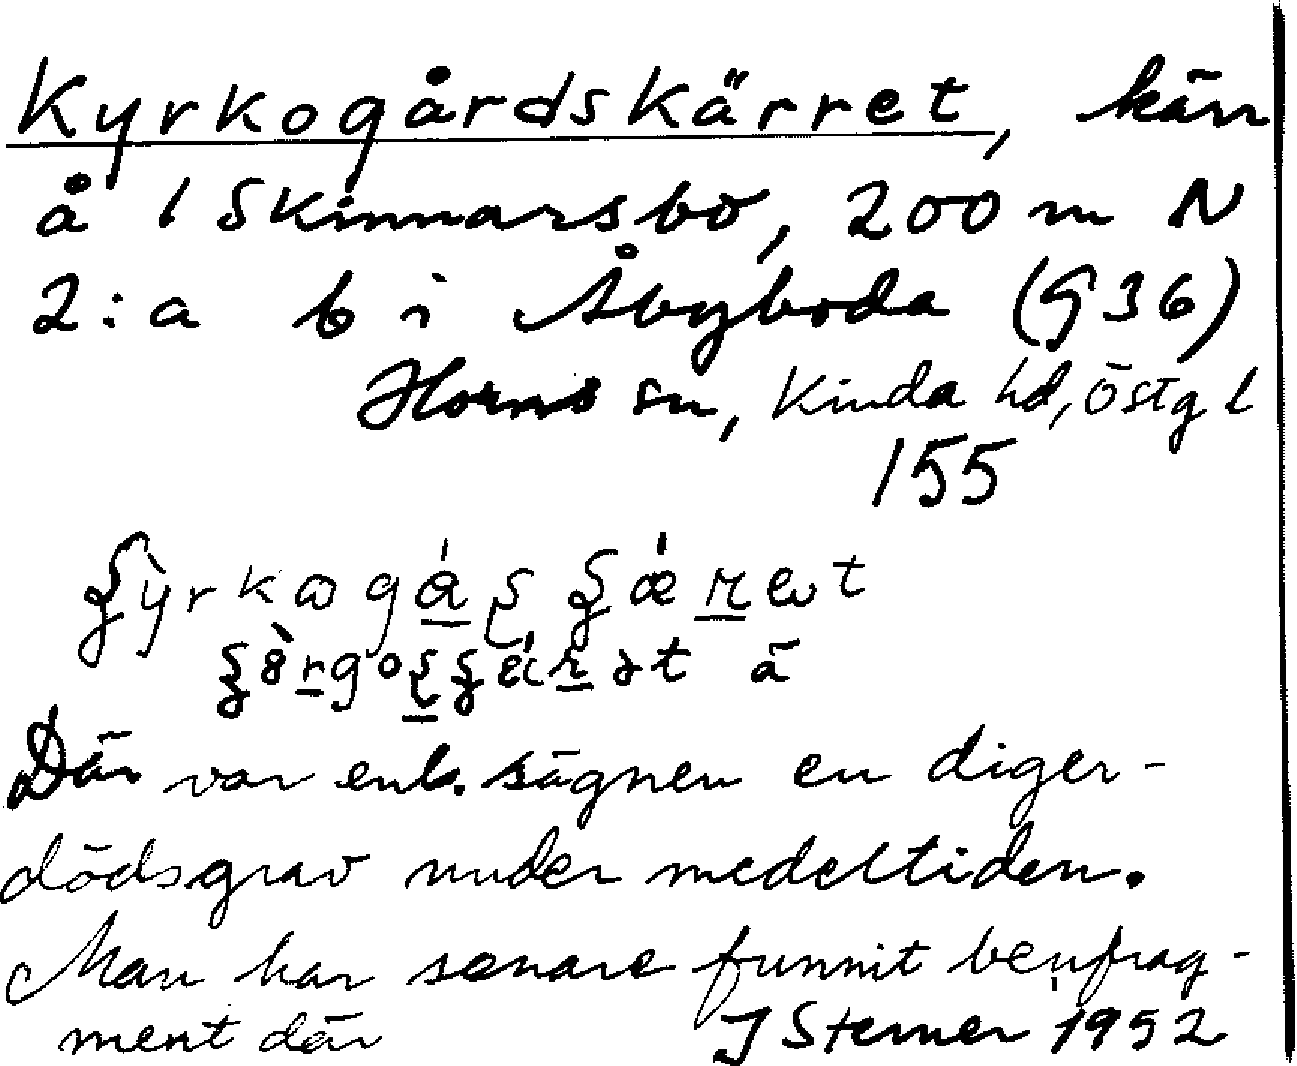 Kyrkogårdskärret, kärr
å 1 Skinnarsbo, 200 m N
2:a b i Åbyboda (G 36)
Horns sn, Kinda hd, Östg l
155
Där var enl. sägnen en diger-
dödsgrav under medeltiden.
Man har senare funnit benfrag-
ment där J Sterner 1952